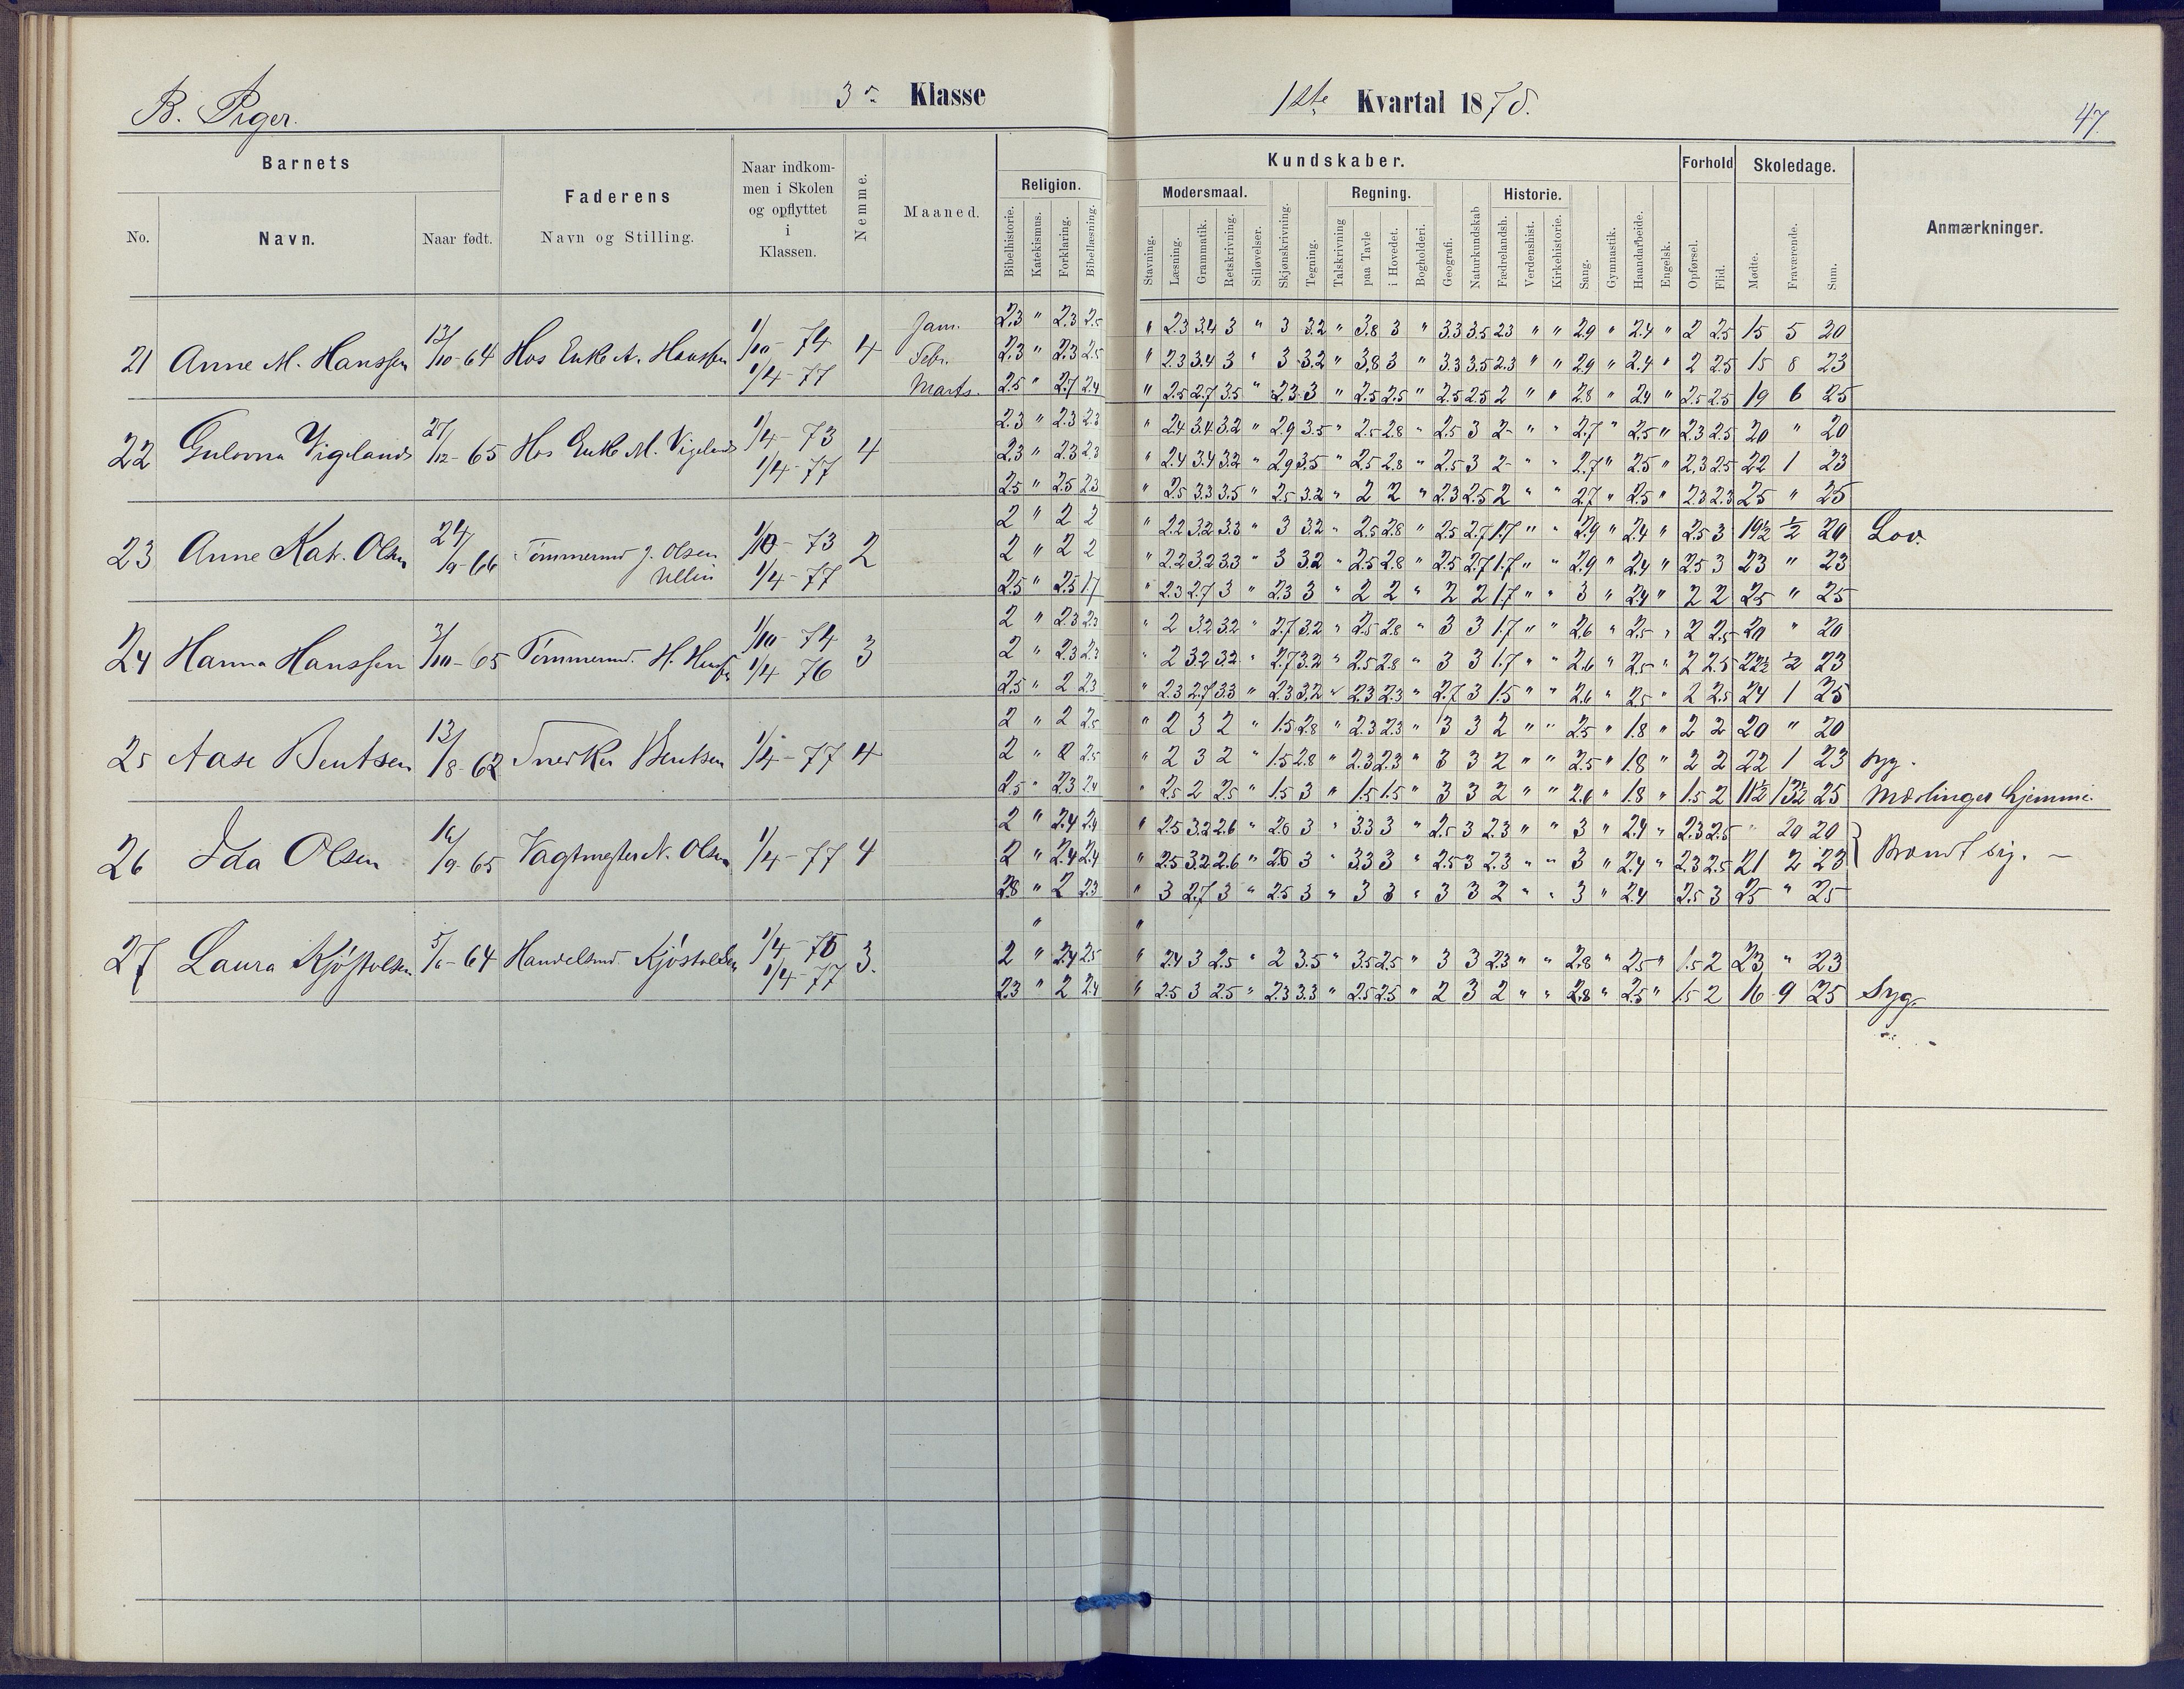 B. Piger.
3die Klasse
1ste Kvartal 1878.
47.
Barnets
No.
Navn.
Naar født.
Faderens
Navn og Stilling.
Naar indkom-
men i Skolen
og opflyttet
i
Klassen.
Nemme.
Maaned.
Kundskaber.
Religion.
Bibelhistorie.
Katekismus.
Forklaring.
Bibellæsning.
Modersmaal.
Stavning.
Læsning.
Grammatik.
Retskrivning.
Stiløvelser.
Skjønskrivning.
Tegning.
Regning.
Talskrivning
paa Tavle
i Hovedet.
Bogholderi.
Geografi.
Naturkundskab
Historie.
Fædrelandsh.
Verdenshist.
Kirkehistorie.
Sang.
Gymnastik.
Haandarbeide.
Engelsk.
Forhold
Opførsel.
Flid.
Skoledage.
Mødte.
Fraværende.
Sum.
Anmærkninger.
21 Anne M. Hanssen 13/10-64 Hos Enke A. Hanssen 1/10-74 1/4-77 4
Jan. 2.3 " 2.3 2.5 " 2.3 3.4 3 " 3 3.2 " 3.8 3 " 3.3 3.5 2.3 " " 2.9 " 2.4 " 2 2.5 15 5 20
Febr. 2.3 " 2.3 2.5 " 2.3 3.4 3 " 3 3.2 " 3.8 3 " 3.3 3.5 2.3 " " 2.9 " 2.4 " 2 2.5 15 8 23
Marts. 2.5 " 2.7 2.4 " 2.5 2.7 3.5 " 2.3 3 " 2.5 2.5 " 2.5 2.5 2 " " 2.8 " 2.4 " 2.5 2.5 19 6 25
22 Vigeland 27/12-65 Hos Enke M. Vigeland 1/4-73 1/4-77 4
2.3 " 2.3 2.3 " 2.4 3.4 3.2 " 2.9 3.5 " 2.5 2.8 " 2.5 3 2 " " 2.7 " 2.5 " 2.3 2.5 20 " 20
2.3 " 2.3 2.3 " 2.4 3.4 3.2 " 2.9 3.5 " 2.5 2.8 " 2.5 3 2 " " 2.7 " 2.5 " 2.3 2.5 22 1 23
2.5 " 2.5 2.3 " 2.5 3.3 3.5 " 2.5 3.2 " 2 2 " 2.3 2.5 2 " " 2.7 " 2.5 " 2.3 2.3 25 " 25
23 Anne Kat. Olsen 24/9-66 Tømmermd J. Olsen 1/10-73 1/4-77 2
2 " 2 2 " 2.2 3.2 3.3 " 3 3.2 " 2.5 2.8 " 2.5 2.7 1.7 " " 2.9 " 2.4 " 2.5 3 19½ ½ 20 Lov.
2 " 2 2 " 2.2 3.2 3.3 " 3 3.2 " 2.5 2.8 " 2.5 2.7 1.7 " " 2.9 " 2.4 " 2.5 3 23 " 23
2.5 " 2.5 1.7 " 2.3 2.7 3 " 2.3 3 " 2 2 " 2 2 1.7 " " 3 " 2.4 " 2 2 25 " 25
24 Hanna Hanssen 3/10-65 Tømmermd. H. 1/10-74 1/4 76 3
2 " 2.3 2.3 " 2 3.2 3.2 " 2.7 3.2 " 2.5 2.8 " 3 3 1.7 " " 2.6 " 2.5 " 2 2.5 20 " 20
2 " 2.3 2.3 " 2 3.2 3.2 " 2.7 3.2 " 2.5 2.8 " 3 3 1.7 " " 2.6 " 2.5 " 2 2.5 22½ ½ 23
2.5 " 2 2.3 " 2.3 2.7 3.3 " 2.3 3.2 " 2.3 2.3 " 2.7 3 1.5 " " 2.6 " 2.5 " 2 2.5 24 1 25
25 Aase Bentsen 13/8-62 Snedker Bentsen 1/4-77 4
2 " 2 2.5 " 2 3 2 " 1.5 2.8 " 2.3 2.3 " 3 3 2 " " 2.5 " 1.8 " 2 2 20 " 20
2 " 2 2.5 " 2 3 2 " 1.5 2.8 " 2.3 2.3 " 3 3 2 " " 2.5 " 1.8 " 2 2 22 1 23 syg.
2.5 " 2.3 2.4 " 2.5 2 2.5 " 1.5 3 " 1.5 1.5 " 3 3 2 " " 2.6 " 1.8 " 1.5 2 11½ 13½ 25 Mæslinger hjemme.
26 Ida Olsen 16/9-65 Vagtmester N. Olsen 1/4-77 4
2 " 2.4 2.4 " 2.5 3.2 2.6 " 2.6 3 " 3.3 3 " 2.5 3 2.3 " " 3 " 2.4 " 2.3 2.5 " 20 20
2 " 2.4 2.4 " 2.5 3.2 2.6 " 2.6 3 " 3.3 3 " 2.5 3 2.3 " " 3 " 2.4 " 2.3 2.5 21 2 23 Brændt sig.
2.8 " 2 2.3 " 3 2.7 3 " 2.5 3 " 3 3 " 3 3 2 " " 3 " 2.4 2.5 3 25 " 25
27 Laura Kjøstolsen 5/6-64 Handelsmd. Kjøstolsen 1/4-75 1/4-77 3.
" "
2 " 2.4 2.5 " 2.4 3 2.5 " 2 3.5 " 3.5 2.5 " 3 3 2.3 " " 2.8 " 2.5 " 1.5 2 23 " 23
2.3 " 2 2.4 " 2.5 3 2.5 " 2.3 3.3 " 2.5 2.5 " 2 3 2 " " 2.8 " 2.5 " 1.5 2 16 9 25 Syg.